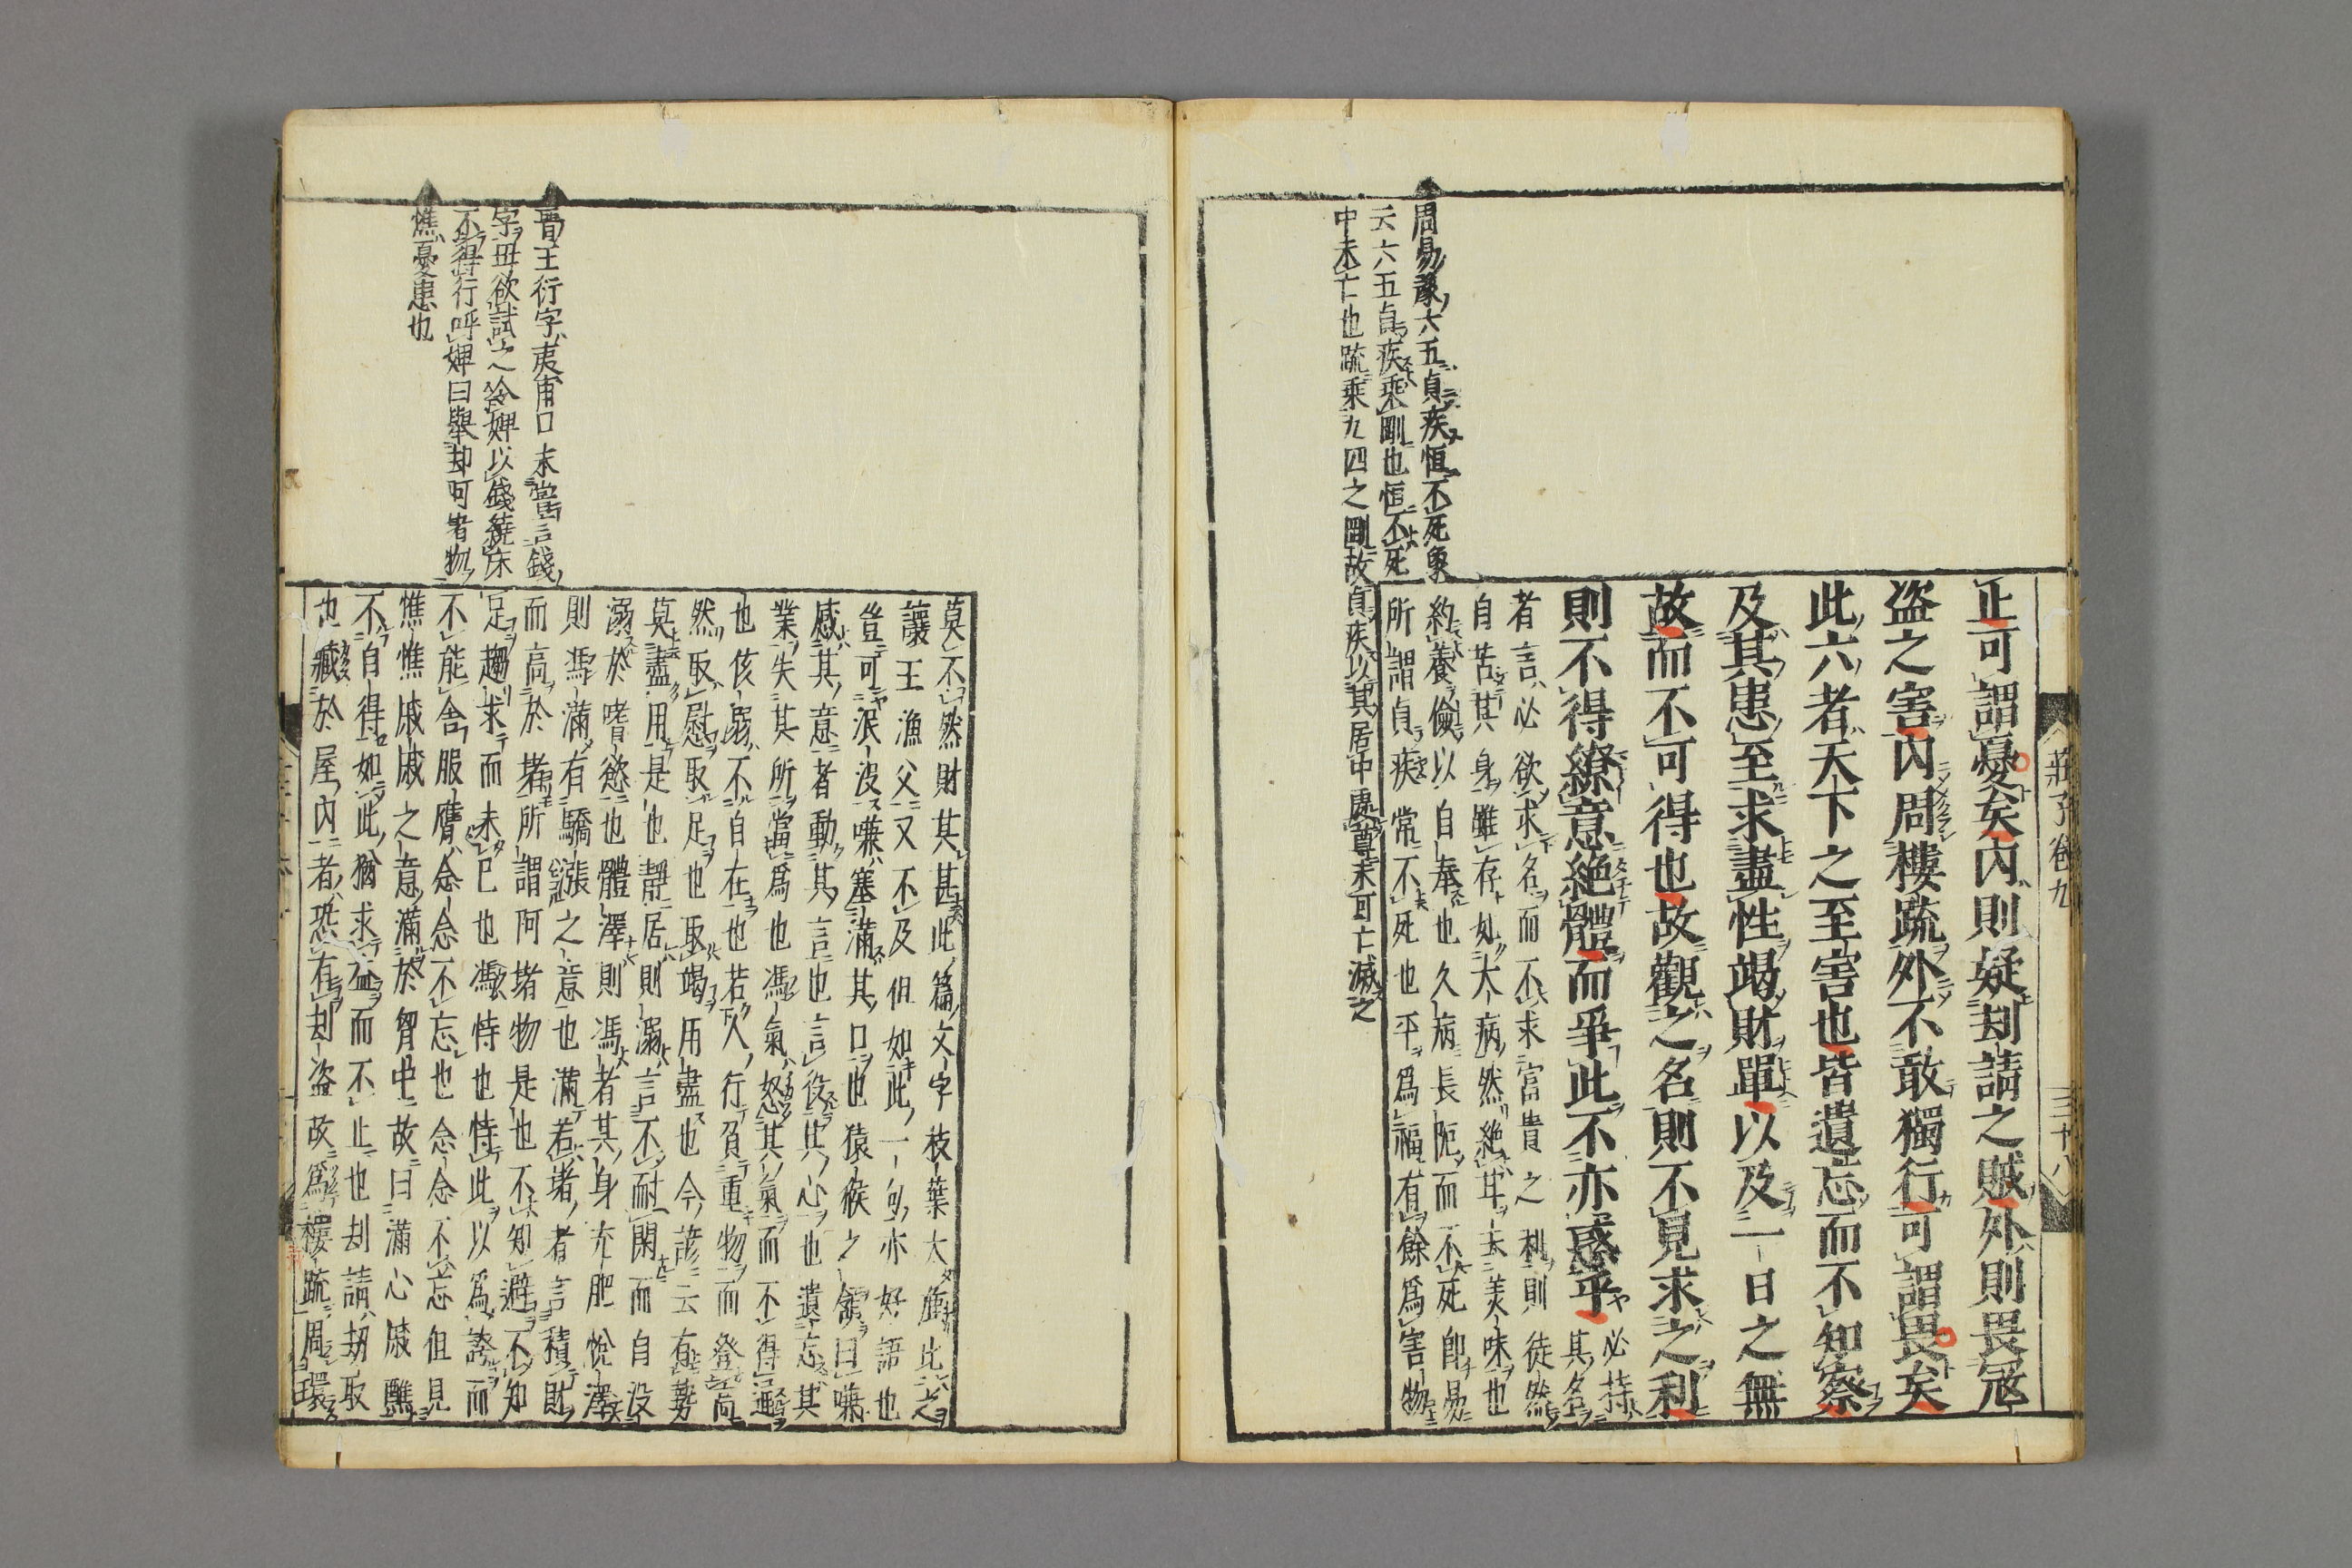 莊子卷九
三十八
止可謂憂矣內則疑刦請之賊外則畏寇
盜之害內周樓疏外不敢獨行可謂畏矣
此六者天下之至害也皆遺忘而不知察
及其患至求盡性竭財單以及一日之無
故而不可得也故觀之名則不見求之利
則不得繚意絶體而爭此不亦惑乎必持其名
者言必欲求名而不求富貴之利則徒然
自苦其身雖存如大病然絶甘去美味也
約養儉以自奉也久病長阨而不死卽易
所謂貞疾常不死也平爲福有餘爲害物
周易豫六五貞疾恒不死象
六五貞疾乘剛也恒不死
中未亡也疏乘九四之剛故貞疾以其居中處尊未可亡滅之
莫不然財其甚此篇文字枝葉太麄比之
讓王漁父又不及但如此一句亦好語也
豈可泯没嗛塞滿其口也猿猴之頷曰嗛
感其意者動其言也言役其心也遺忘其
業失其所當爲也馮氣怒其氣而不得通
也侅溺不自在也若人行負重物而登高
然取慰取足也取竭用盡也今諺云有勢
莫盡用是也靜居則溺言不耐閑而自没
溺於嗜慾也體澤則馮者其身充肥悅澤
則馮滿有驕漲之意也滿若堵者言積財
而高於堵所謂阿堵物是也不知避不知
足趨求而未已也馮恃也恃此以爲誇而
不能舍服膺念念不忘也念念不忘但見
憔憔戚戚之意滿於胷中故曰滿心戚醮
不自得如此猶求益而不止也刦請刼取
也藏於屋內者恐有刦盜故爲樓疏周環
晋王衍字夷甫口未嘗言錢
字母欲試之令婢以錢繞床
不得行呼婢曰舉却阿堵物
憔憂患也